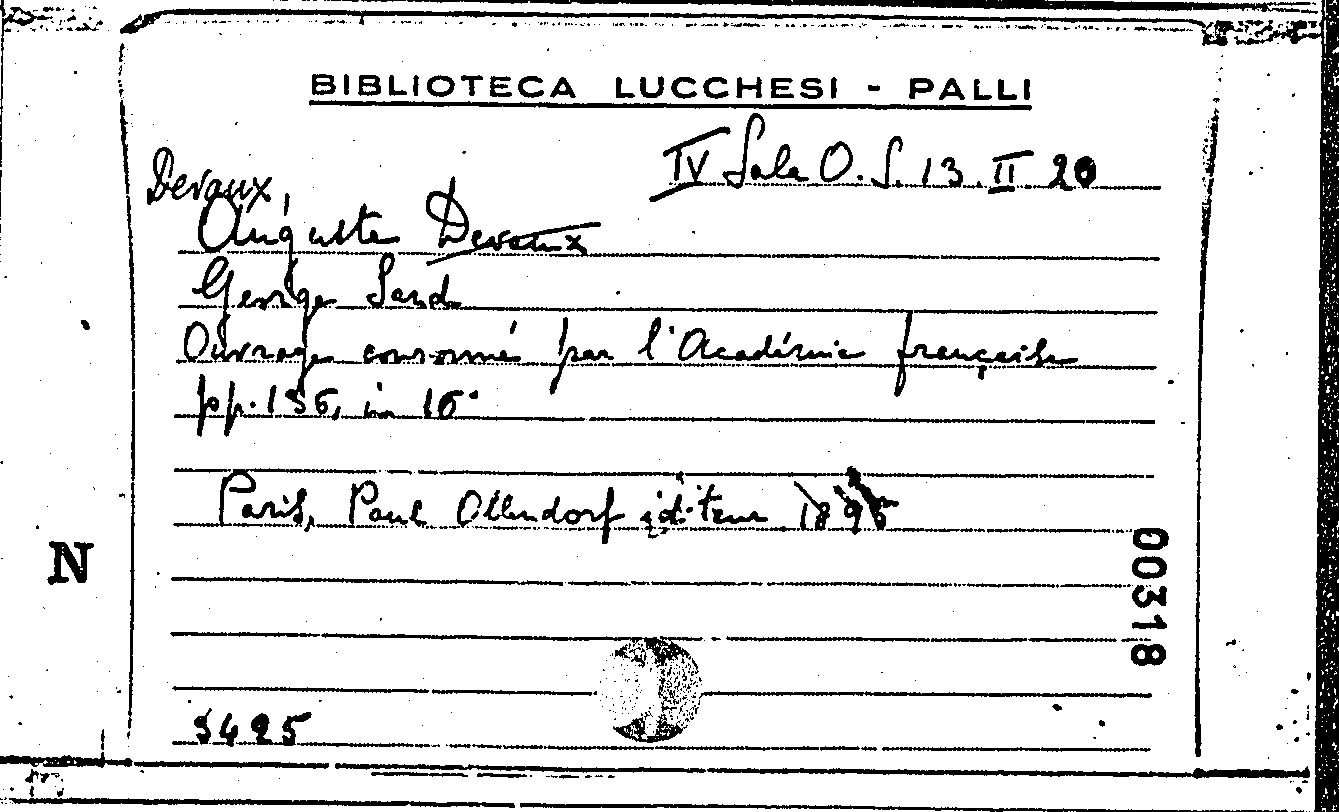 BIBLIOTECA LUCCHESI - PALLI
IV Sala O. S. 13. II 20
Devaux,
Auguste Devaux
George Sand
Ouvrage couronné par l'Académie française
pp. 156, in 16°
Paris, Paul Ollendorf éditeur 1895
N
00318
5425